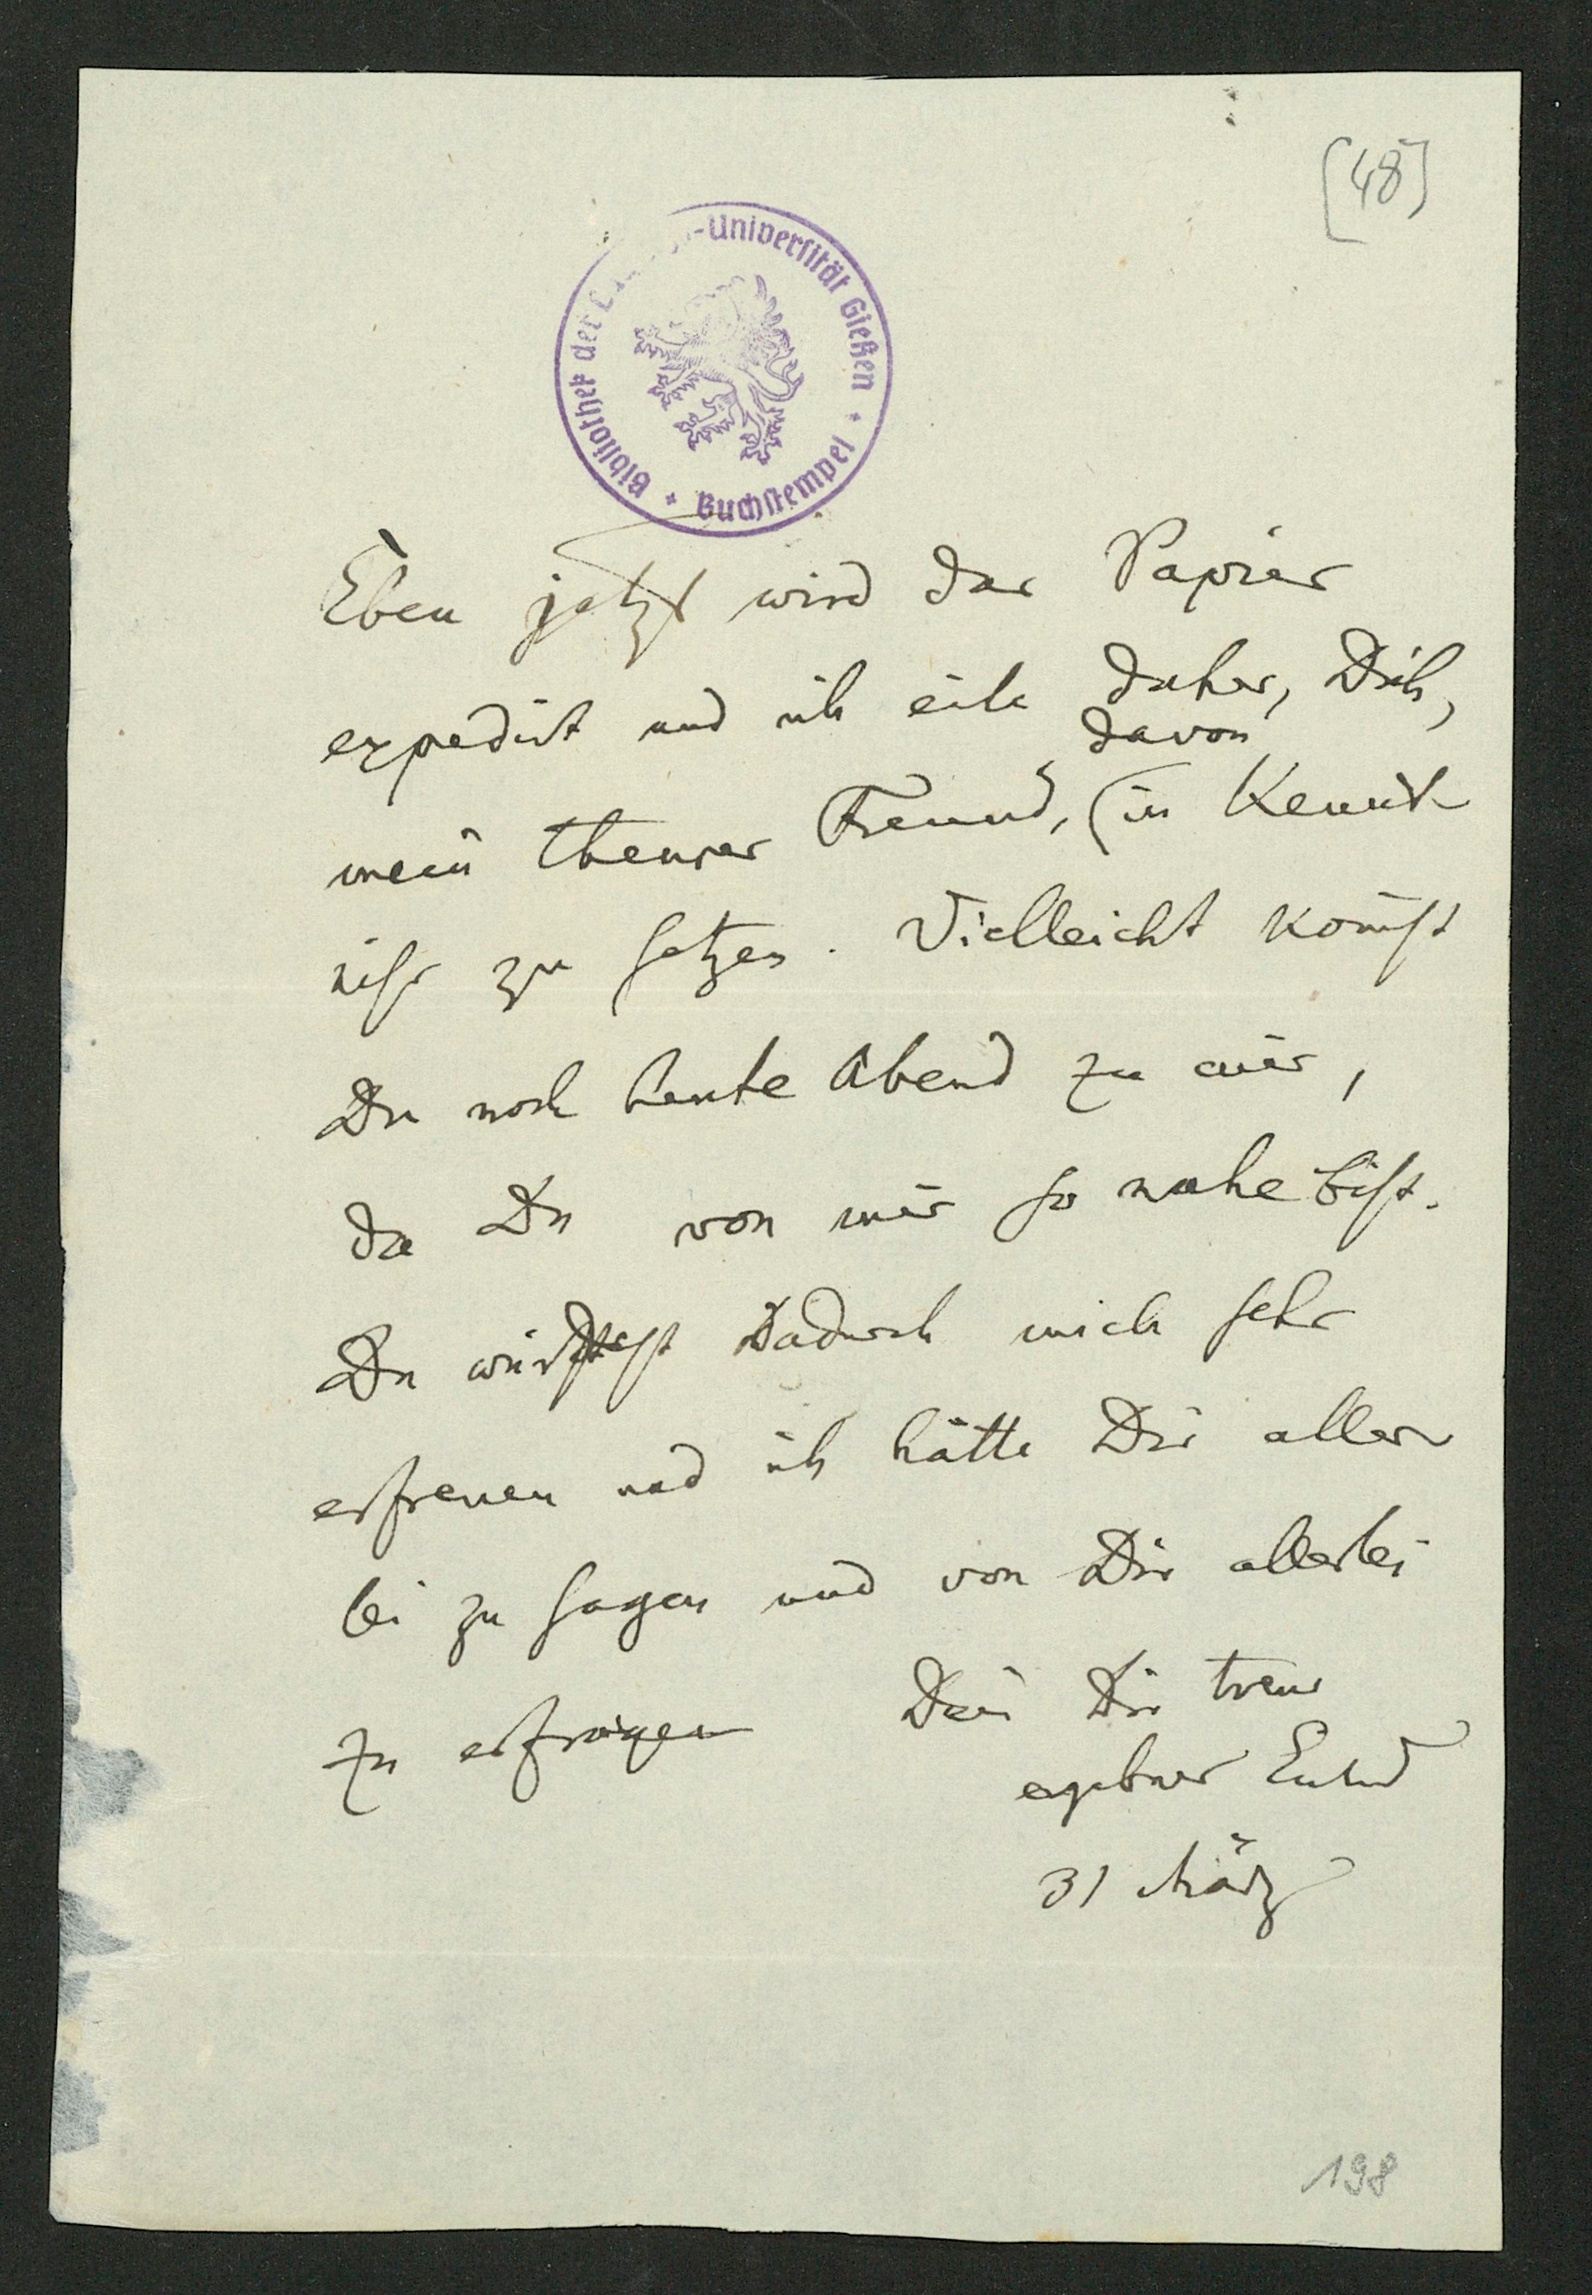 [48]
Bibliothek der L -Universität Gießen
Buchstempel
Eben jetzt wird das Papier
expedirt und ich eile daher, Dich,
davon
mein theurer Freund, in Kennt
niss zu setzen. Vielleicht kom̄st
Du noch heute Abend zu mir,
da Du von mir so nahe bist.
Du würdest dadurch mich sehr
erfreuen und ich hätte Dir aller
lei zu sagen und von Dir allerlei
zu erfragen
Dein Dir treu
ergebner
31 März
198